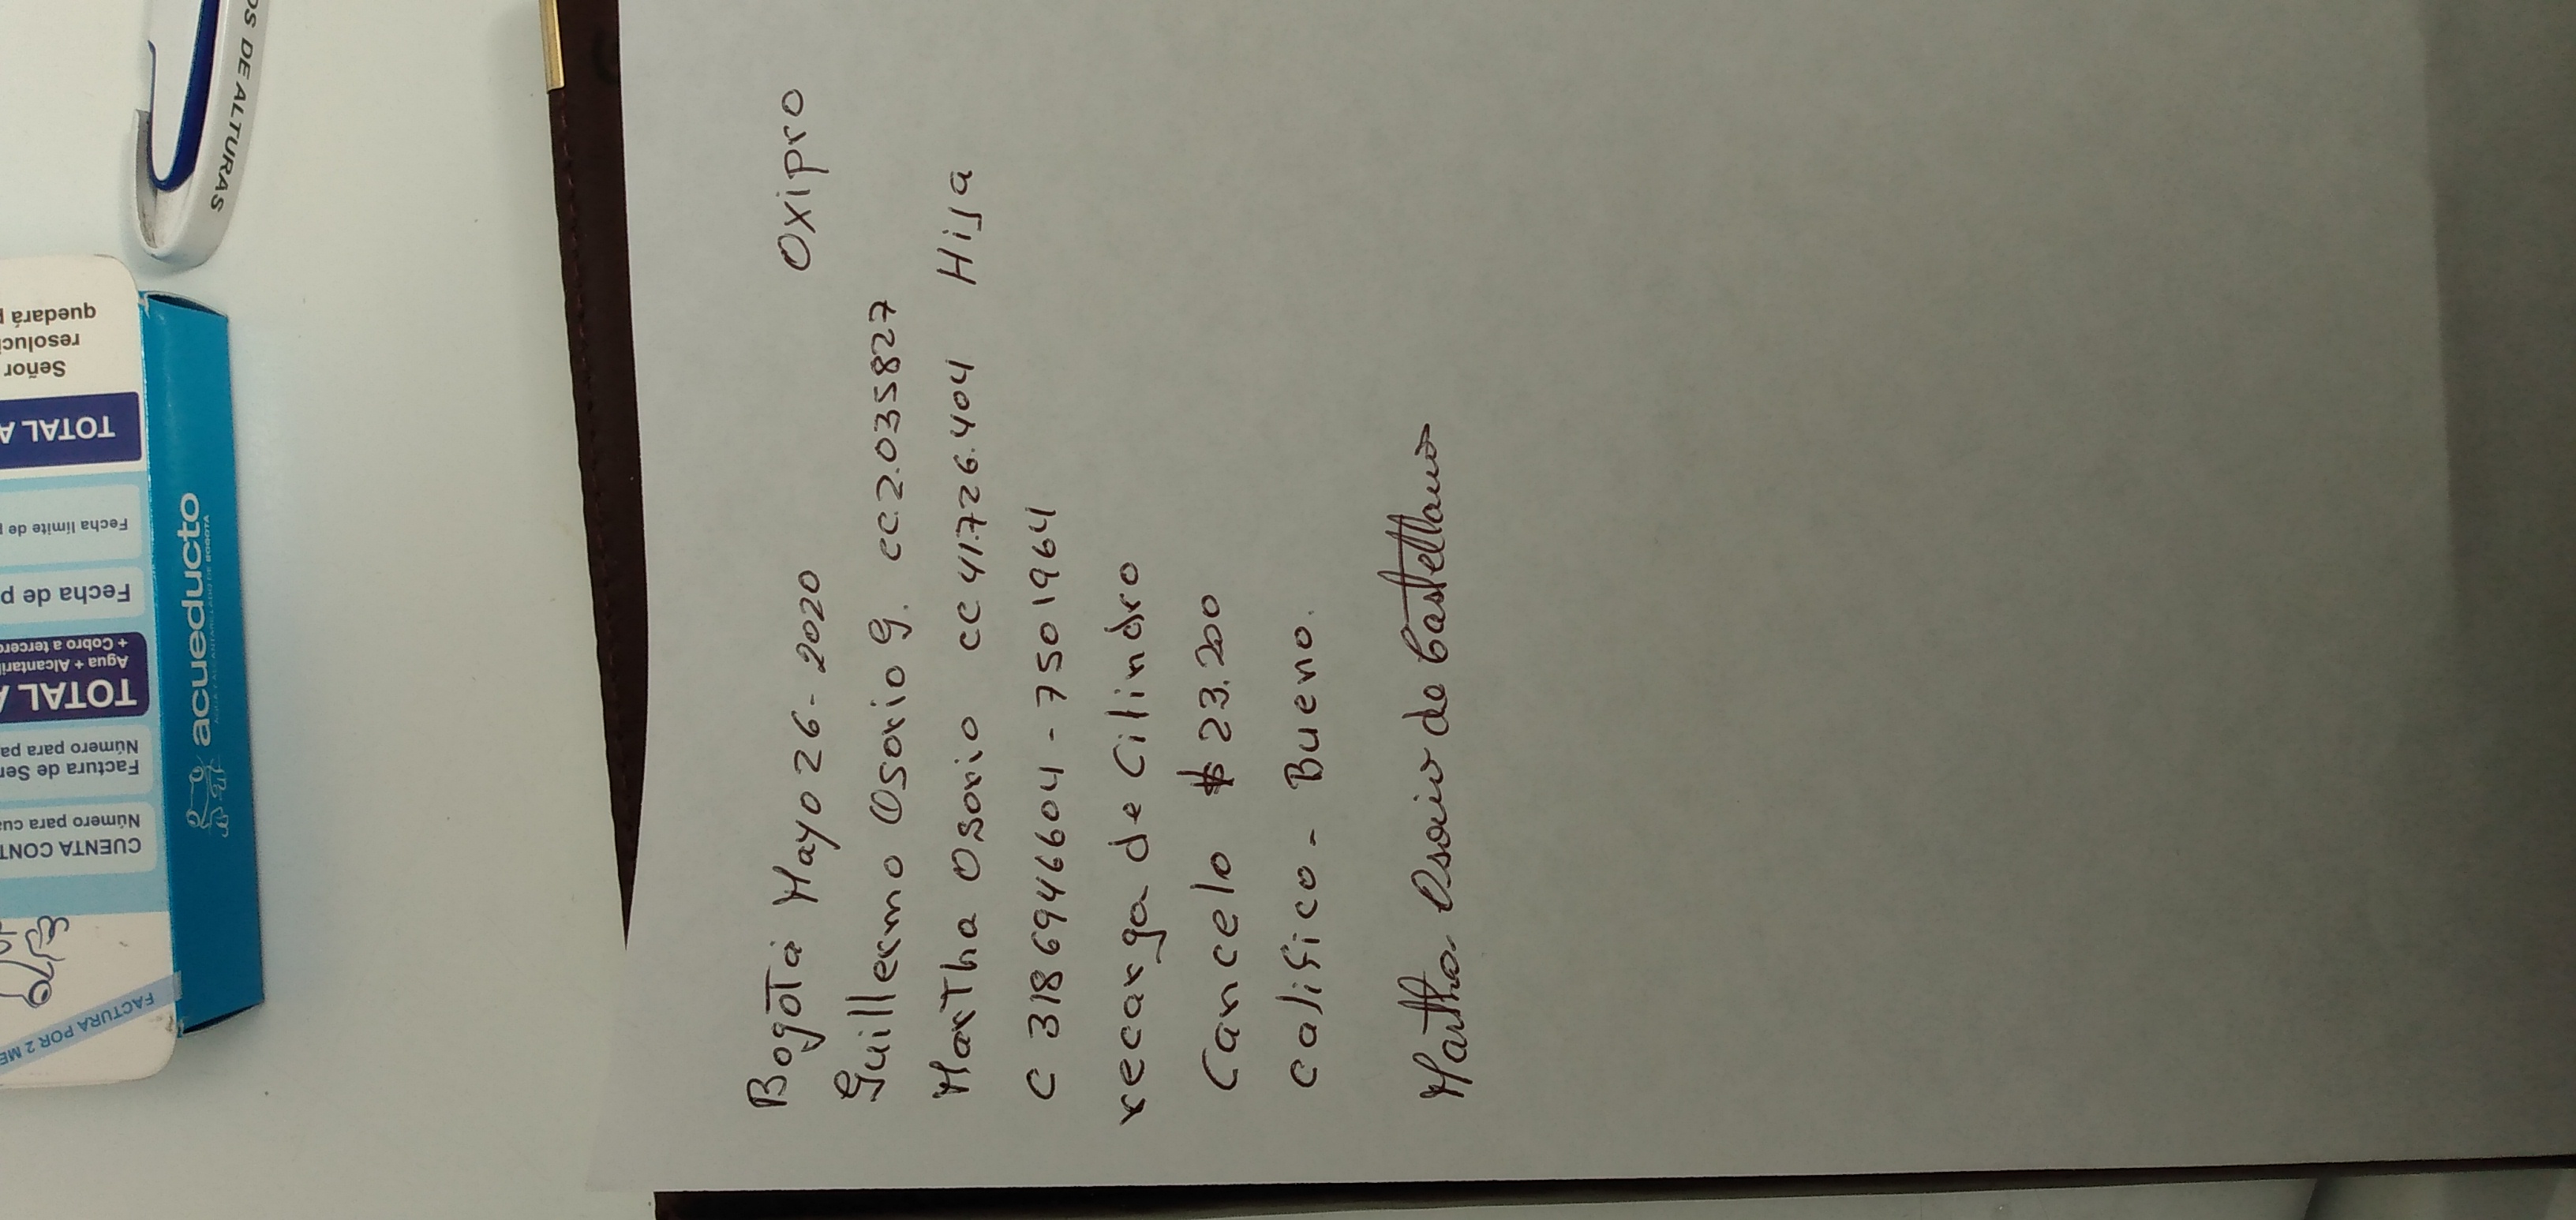 Bogotá Mayo 26-2020 Oxipro
Guillermo Osorio G. cc.2.035827
Martha Osorio cc 41.726.404 Hija
C 3186946604 - 7501964
recarga de Cilindro
Cancelo $ 23.200
califico - Bueno.
Martha Osorio de Castellanos
OS DE ALTURAS
quedará
Señor
TOTAL A
Fecha límite de
Fecha de p
+ Cobro a tercero
TOTAL A
Número para
Factura de
Número para
CUENTA CONT
FACTURA POR 2 ME
acueducto
AGUA Y ALCANTARILLADO DE BOGOTÁ